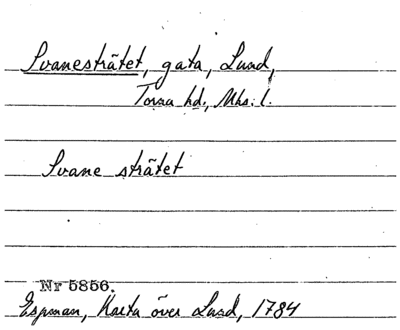 Svanesträtet, gata, Lund,
Torna hd., Mhs. l.
Svane strätet
Nr 5856.
Espman, Karta över Lund, 1784